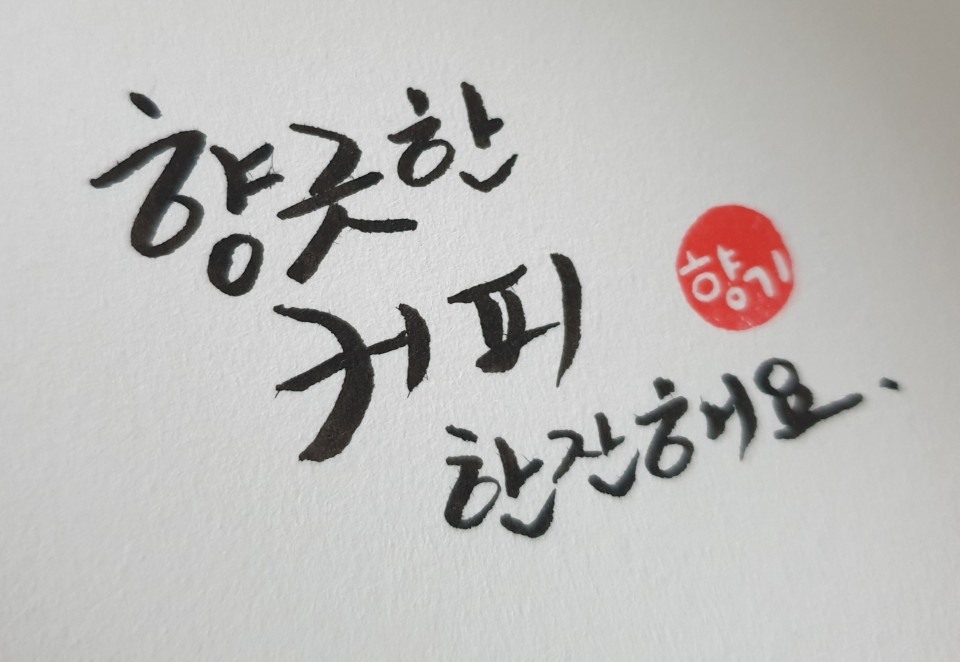 향긋한
커피
향기
한잔해요.